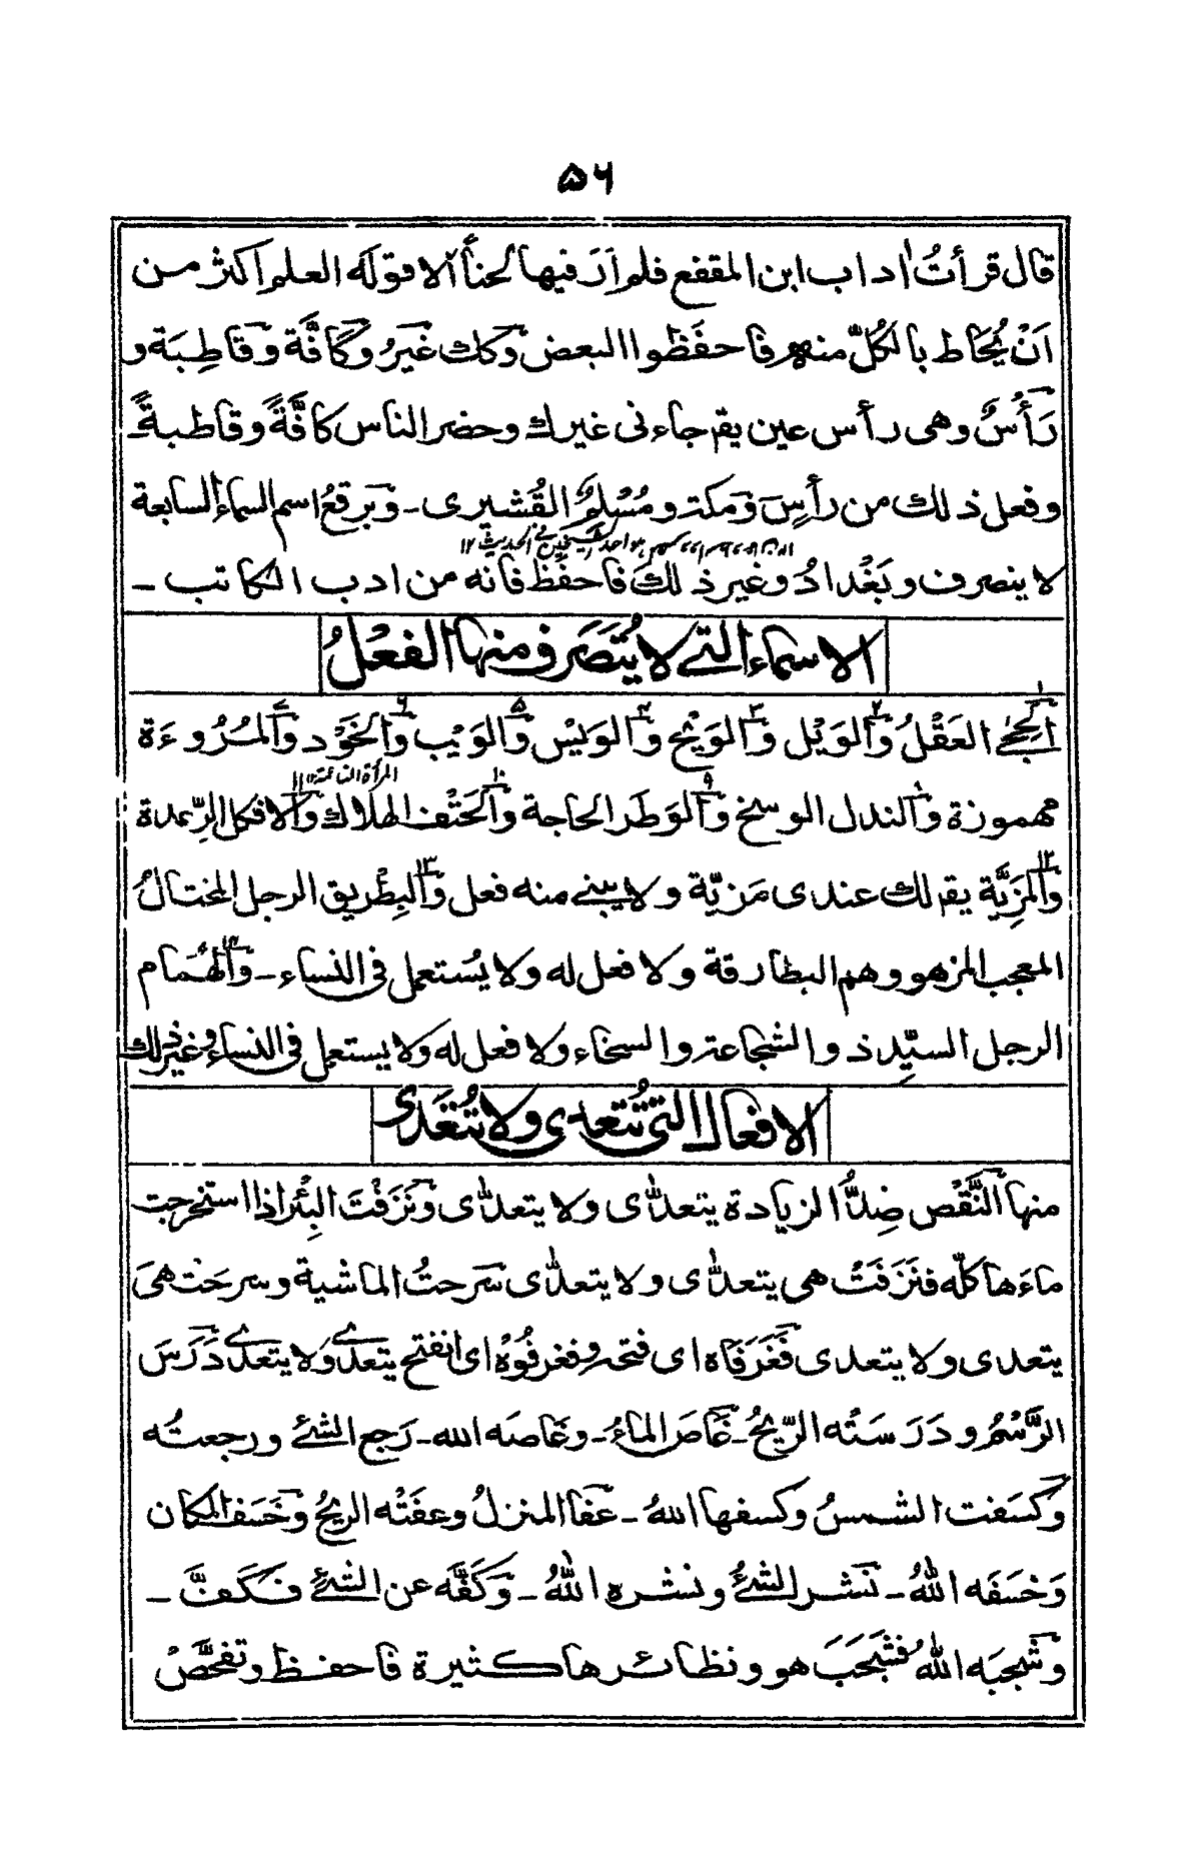 ۵۶
قال قرأتُ اٰداب ابن المقفع فلم اَرَ فيها لحناً الا قوله العلم اكثر من
اَنْ يُحَاط بالكُلّ منه فاحفَظوا البعض وكك غَيرُ وكَافَّة وقاطِبَة و
رَأسٌ وهى رأس عين يقم جاءنى غيرك وحضر الناس كافَّةً وقاطبةً
وفعل ذلك من رأسٍ ومكة ومُسْلِمٌ القُشيرى ـ وبرقعُ اسم السماء السابعة
لا ينصرف وبَغْدادُ وغير ذلك فاحفَظ فانه من ادب الكاتب ـ
الاسماء التے لا يُتَصَرف منها الفعْلُ
الحِجٰے العَقْلُ والوَيْل والوَيْح والوَيْس والوَيْب والخَوْد والمُرُوءَة
المرأة الناعمة ١٢
مهموزة والندل الوسخ والوَطَر الحاجة والحَتْف الهلاك والافكل الرِّعدة
والمَزِيَّة يقم لك عندى مَزيّة ولا يبنے منه فعل والبِطْريق الرجل المختالُ
المعجب المزهو وهم البطارقة ولا فعل له ولا يُستعمل فى النساء ـ والهُمَام
الرجل السيّد ذو الشجاعة والسخاء ولا فعل له ولا يستعمل فى النساء وغير ذلك
الافعال التى تُتعدى ولا تُتَعَدى
منها النَّقْص ضِدُّ الزيادة يتعدّٰى ولا يتعدّٰى ونَزَفْتُ البِئر اذا استخرجت
ماءَها كلّه فنَزَفَتْ هى يتعدّٰى ولا يتعدّٰى سَرحتُ الماشية وسرحَت هىَ
يتعدى ولا يتعدى فَغَرَ فَاه اى فتحه وفغر فُوْهُ اى انفتح يتعدّے ولا يتعدّے دَرَسَ
الرَّسْمُ ودَرَسَتْه الرّيحُ ـ غَاضَ الماءُ ـ وغَاضَه الله ـ رَجع الشئ ورجعتُه
وكسَفت الشمسُ وكسفها اللهُ ـ عَفَا المنزلُ وعفَتْه الريحُ وخَسَف المكان
وَخسَفَه اللهُ ـ نَشر الشئُ ونشره اللهُ ـ وكَفَّه عن الشئِ فكَفَّ ـ
وشَجبَه اللهُ فشَجَبَ هو ونظائرها كثيرة فاحفظ وتفحَّصْ